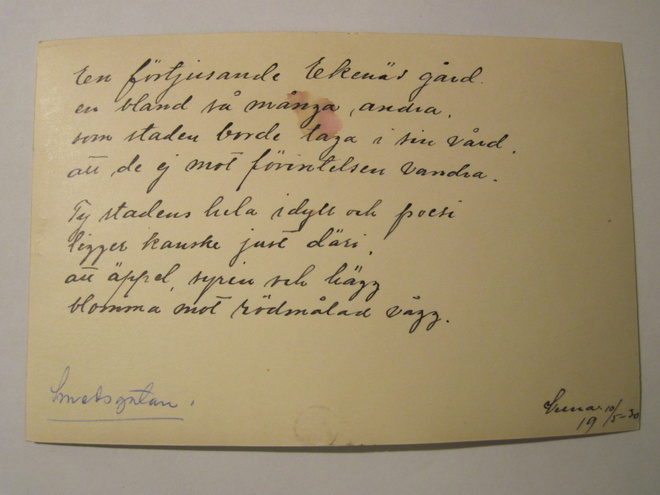 En förtjusande Ekenäs gård.
en bland så många, andra,
som staden borde taga i sin vård,
att de ej mot förintelsen vandra.
Ty stadens hela idyll och poesi
ligger kanske just däri,
att äppel, syrén och hägg
blomma mot rödmålad vägg.
Smedsgatan.
10/5-30
19